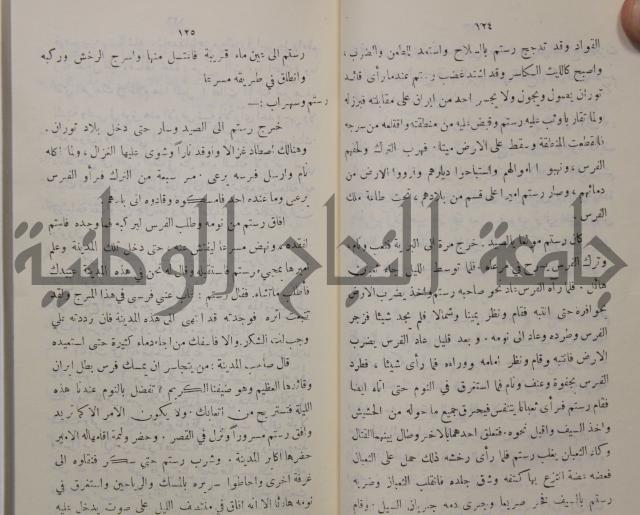 ١٢٤
القواد وقد تدجج رستم بالسلاح واستعد للطعن والضرب،
واصبح كالليث الكاسر وقد اشتد غضب رستم عندما رأى قائد
توران يصول ويجول ولا يجسر احد من ايران على مقابلته فبرز له
ولما تقاربا وثب عليه رستم وقبض عليه من منطقته واقتلعه من سرجه
فانقطعت المنطقة وسقط على الارض ميتا. فهرب الترك ولحقهم
الفرس ونهبوا اموالهم واستباحوا ديارهم وارووا الارض من
دمائهم، وصار رستم اميرا على قسم من بلادهم، تحت طاعة ملك
الفرس.
كان رستم مولعا بالصيد. خرج مرة الى البرية فتعب ونام
وترك الفرس يسرح في مرعاه. فلما توسط الليل جاء
هائل. فلما رآه الفرس عاد نحو صاحبه رستم واخذ يضرب الارض
بحوافره حتى انتبه فقام ونظر يمينا وشمالا فلم يجد شيئا فزجر
الفرس وطرده وعاد الى نومه. وبعد قليل عاد الفرس يضرب
الارض فانتبه وقام ونظر امامه ووراءه فما رأى شيئا، فطرد
الفرس بجفوة وعنف ونام فما استغرق في النوم حتى اتاه ايضا
فقام رستم فرأى ثعبانا يتنفس فيحرق جميع ما حوله من الحشيش
واخذ السيف واقبل نحوه. فتعلق احدهما بالاخر وطال بينهما القتال
وكاد الثعبان يغلب رستم فلما رأى رخشه ذلك حمل على الثعبان
فعضه عضة انتزع بها كتفه وشق جلده فانقلب الثعبان وضربه
رستم بالسيف فخر صريعا وجرى دمه جريان السيل. وقام
١٢٥
رستم الى عين ماء قريبة فاغتسل منها واسرج الرخش وركبه
وانطلق في طريقه مسرعا
رستم وسهراب :—
خرج رستم الى الصيد وسار حتى دخل بلاد توران.
وهنالك اصطاد غزالا واوقد نارا وشوى عليها الغزال، ولما اكله
نام وارسل فرسه يرعى. مر سبعة من الترك فرأوا الفرس
يرعى وما عنده احد فامسكوه وقادوه الى بلدهم.
افاق رستم من نومه وطلب الفرس ليركبه فما وجده فاغتم
لفقده ونهض مسرعا يفتش عنه حتى دخل تلك المدينة وعلم
اميرها بمجيء رستم فاستقبله وقال له نحن في هذه المدينة عبيدك
فاطلب ما تشاء. فقال رستم: غاب عني فرسي في هذا المرج ولقد
تتبعت اثره فوجدته قد انتهى الى هذه المدينة فان رددته علي
وجب لك الشكر، والا فاسفك من اجله دماء كثيرة حتى استعيده
قال صاحب المدينة: من يتجاسر ان يمسك فرس بطل ايران
وقائدها العظيم وهو ضيفنا الكريم؟ تفضل بالنوم عندنا هذه
الليلة فتستريح من اتعابك. ولا يكون الامر الا كما تريد
وافق رستم مسرورا ونزل في القصر. وحضر وليمة اقامها له الامير
حضرها اكابر المدينة. وشرب رستم حتى سكر فنقلوه الى
غرفة اخرى واحاطوا سريره بالمسك والرياحين واستغرق في
نومه هادئا الا انه افاق في منتصف الليل على صوت يدخل عليه
جامعة النجاح الوطنية